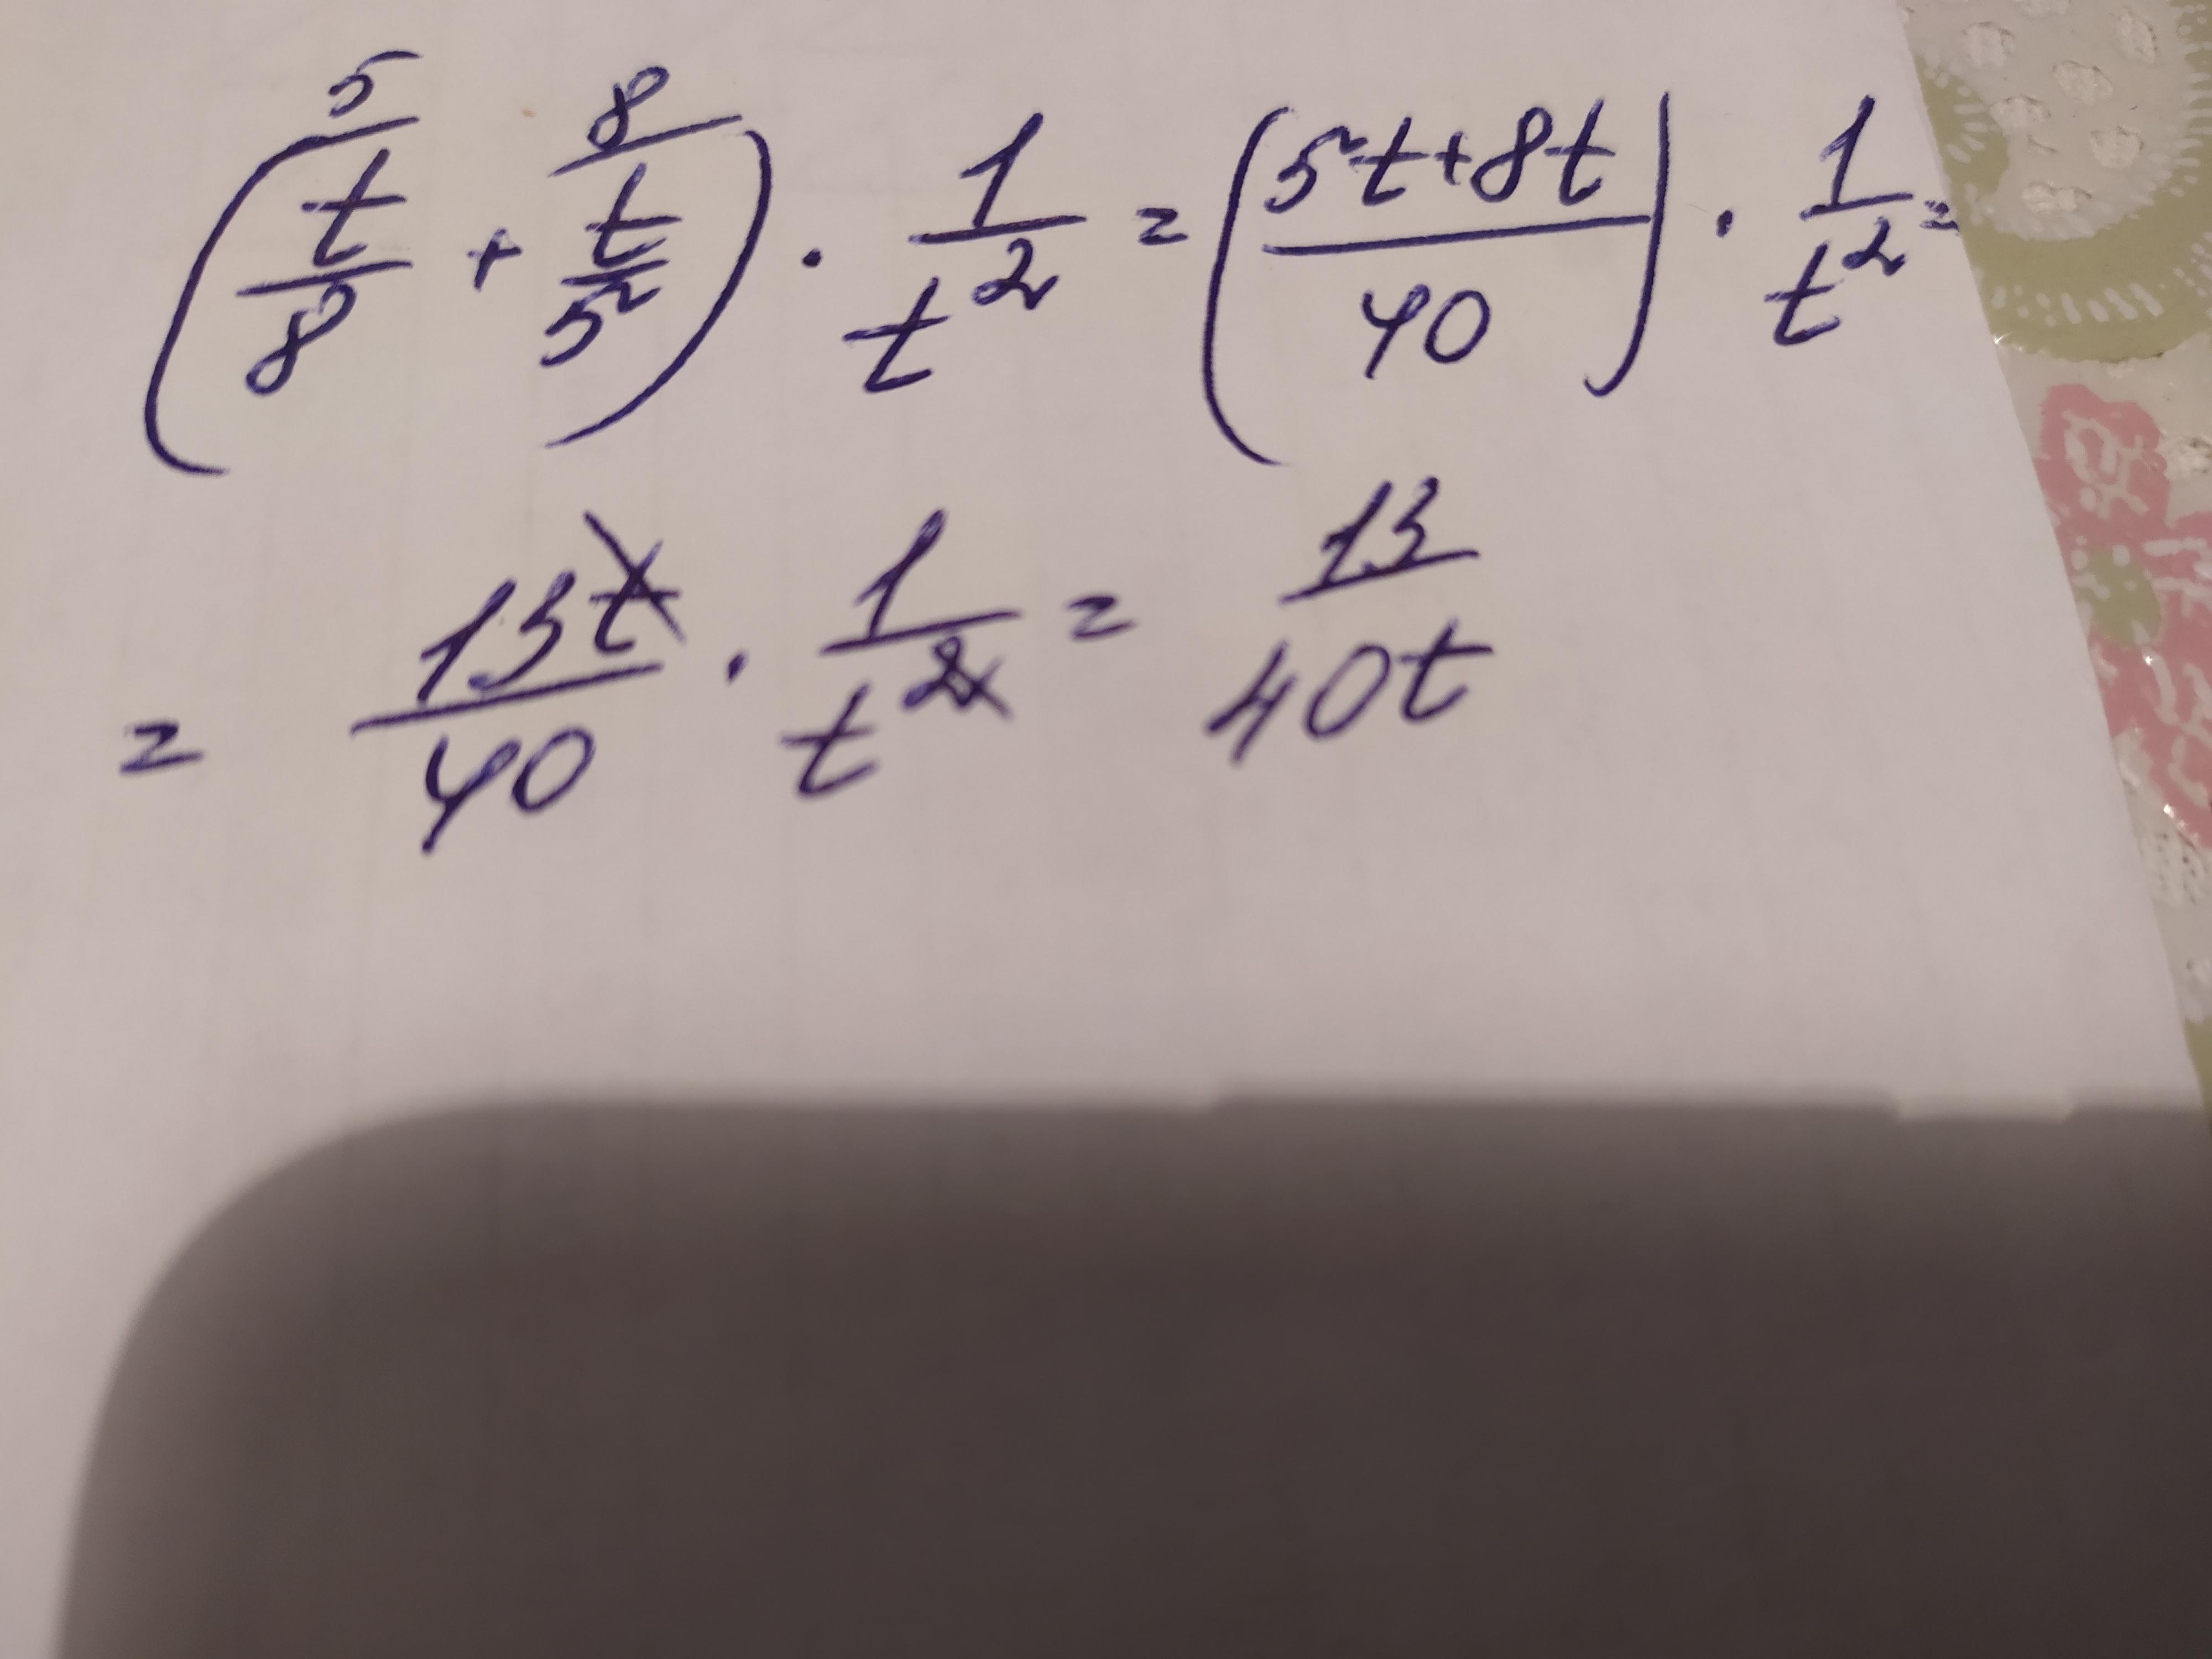 (5/ t/8 + 8/ t/5) · 1/t² = (5t+8t)/40 · 1/t² =
= 13t/40 · 1/t² = 13/40t